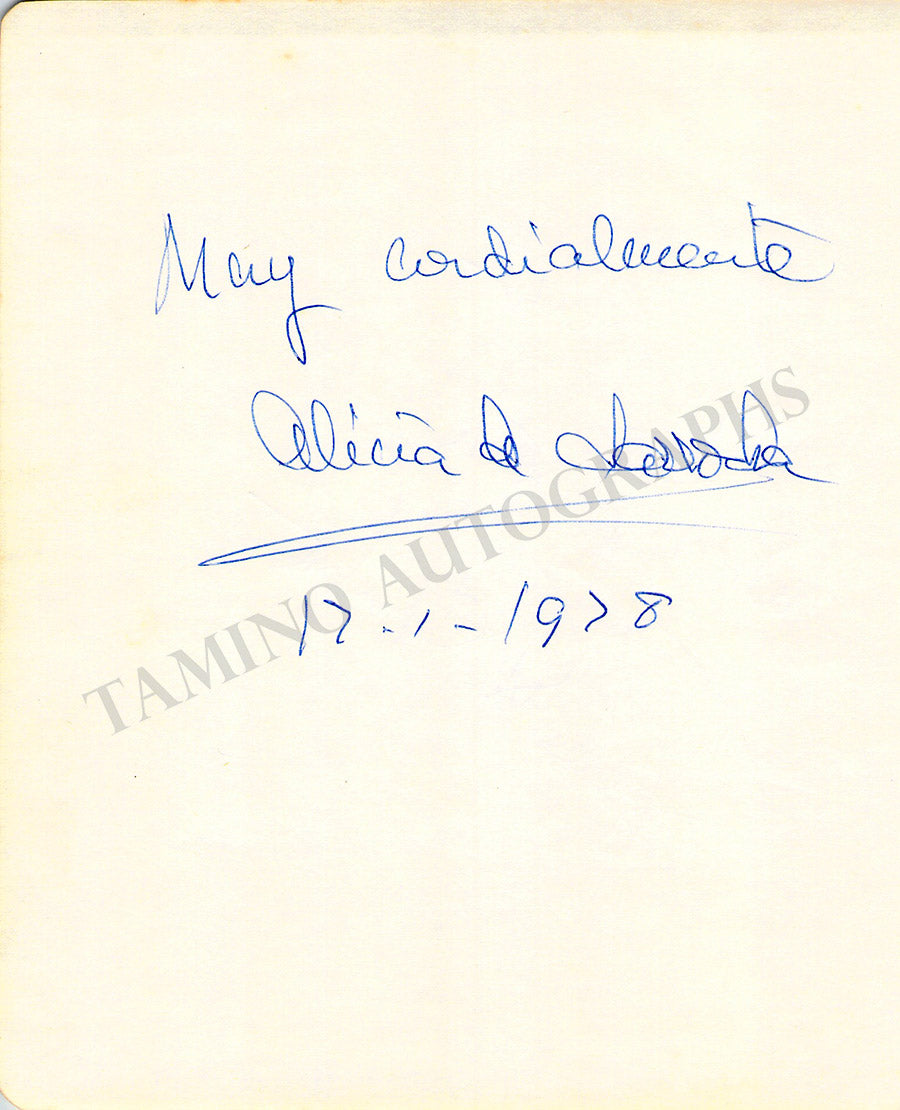 Muy cordialmente
Alicia de Larrocha
17-1-1978
TAMINO AUTOGRAPHS